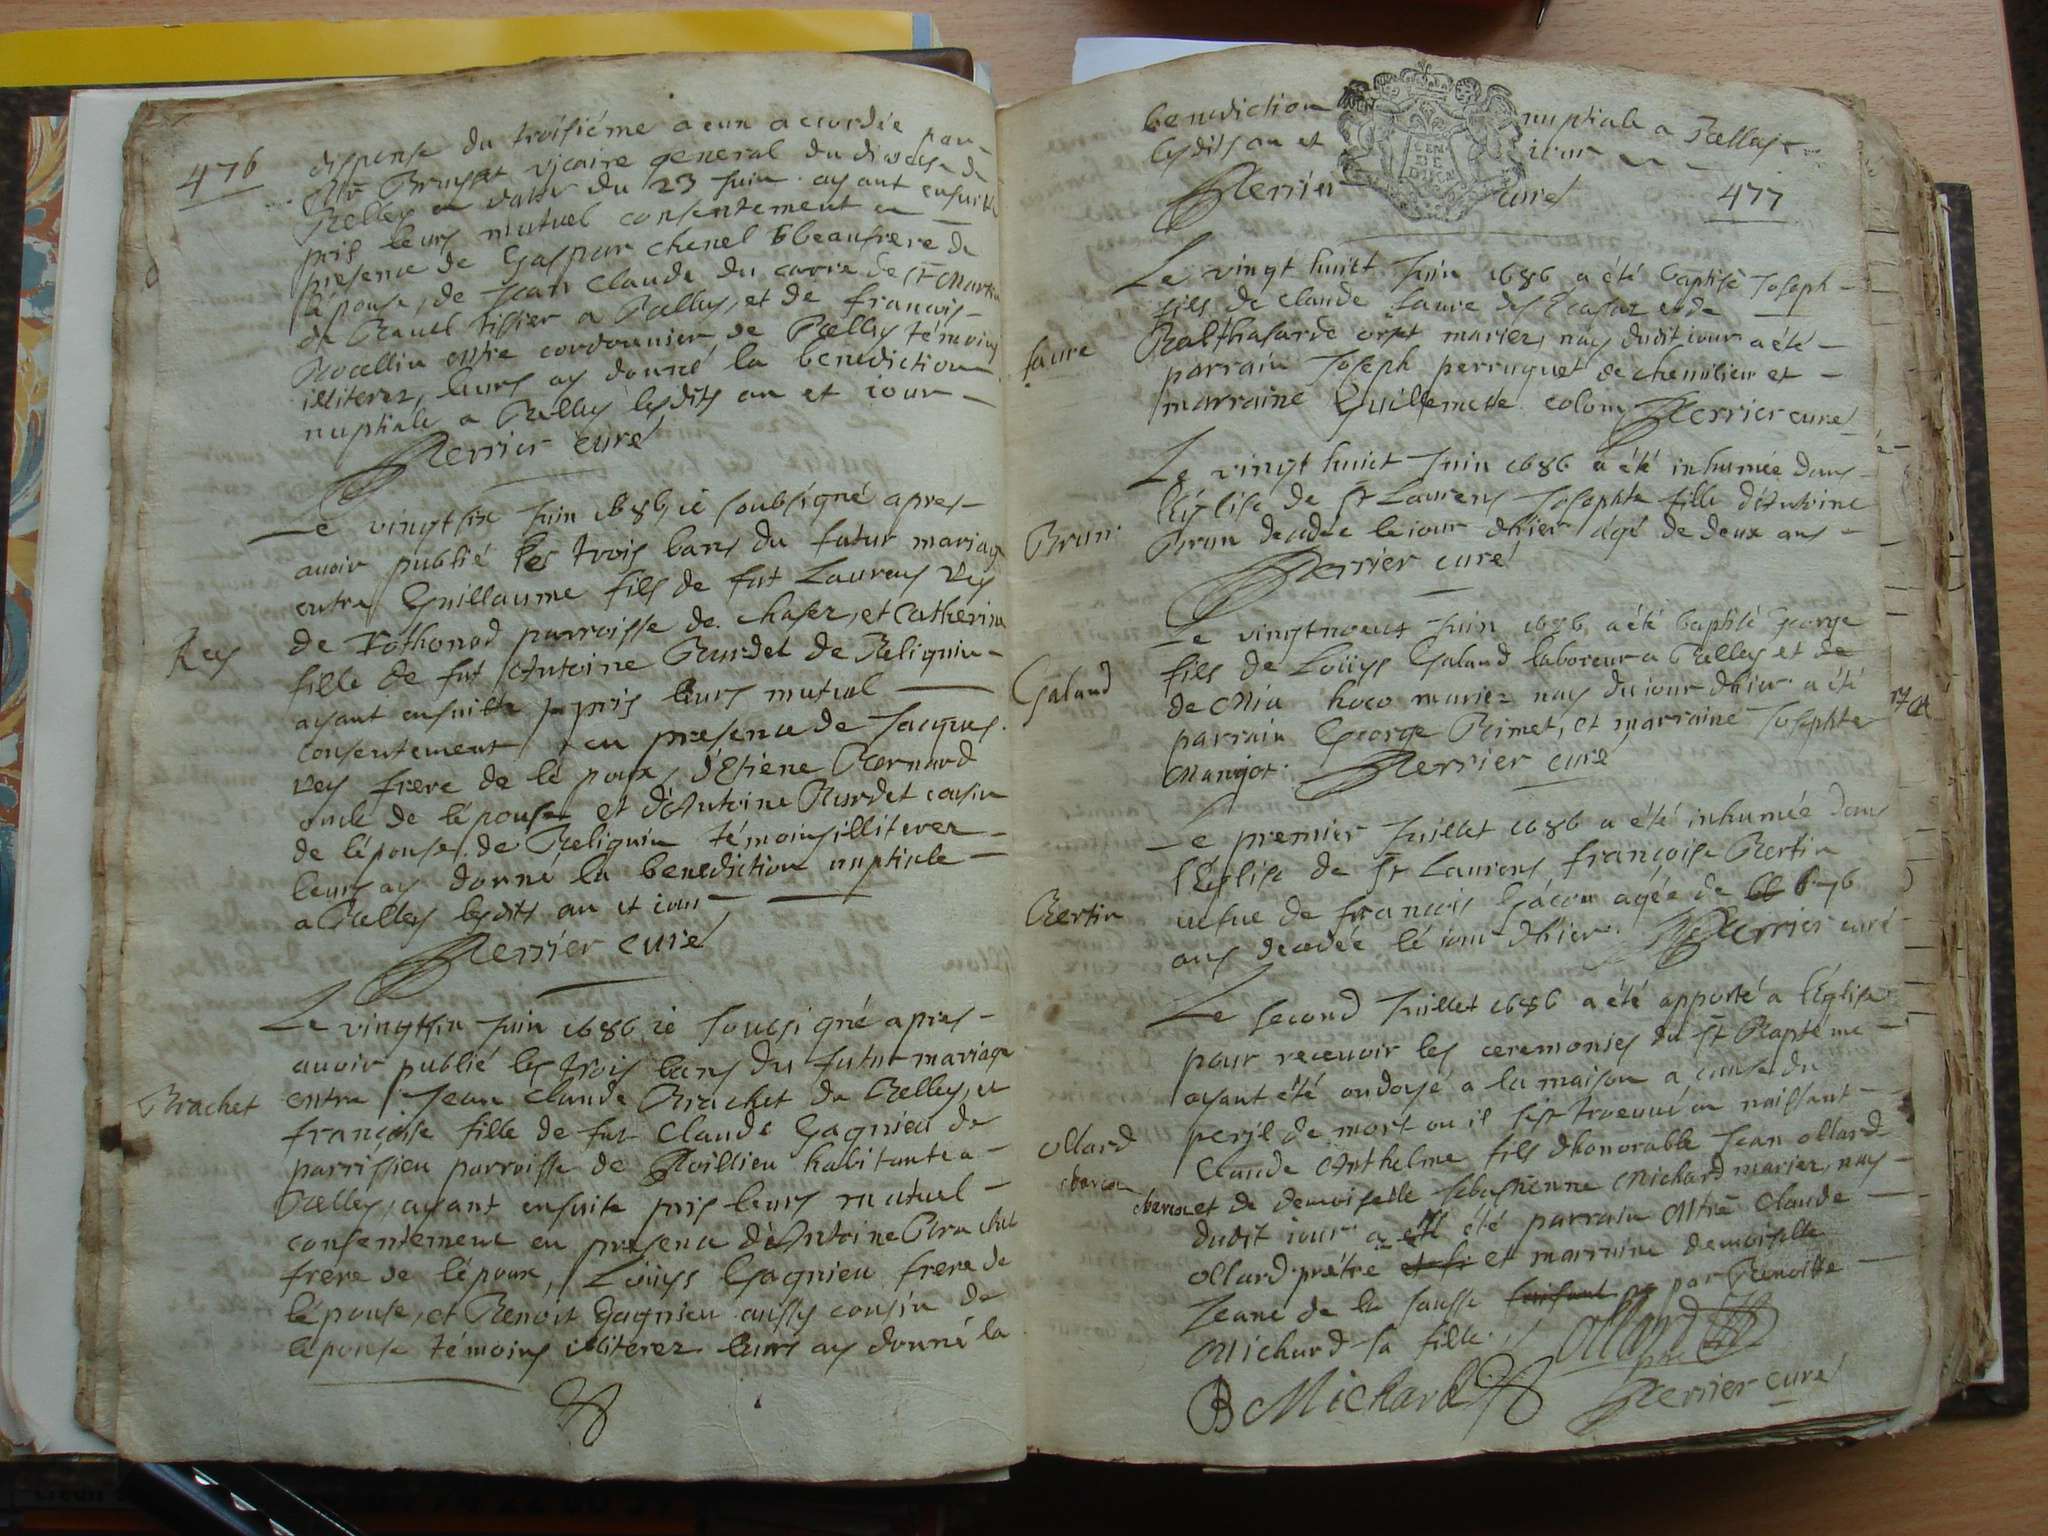 476
dispense du troisiéme a eux accordée par
Mr Bruyset vicaire general du diocese de
Belley en datte du 23 Juin ayant ensuitte
pris leurs mutuel consentement en
presence de Gaspar chenel beaufrere de
lépouse, de Jean Claude du carre de St Martin
de Bauel tissier a Belley, et de francois
Rocellin cordonnier de Belley témoins
illiterez, leurs ay donné la benediction
nuptiale a Belley lesdits an et iour
Perrier curé
Le vingtsix Juin 1686 ie soubsigné apres
avoir publié les trois bans du futur mariage
entre Guillaume fils de fut Laurens Rey
Rey
de Rothonod parroisse de chasez, et Catherine
fille de fut Antoine Burdet de Beligniu
ayant ensuitte pris leurs mutuel
consentement en presence de Jacques
Rey frere de lépoux, d'Etiene Bernard
oncle de lépouse et d'Antoine Burdet cousin
de lépouse de Beligniu témoins illiterez
leurs ay donné la benediction nuptiale
a Belley lesdits an et iour
Perrier curé
Le vingtsix Juin 1686 ie soussigné apres
avoir publié les trois bans du futur mariage
Brachet
entre Jean Claude Brachet de Belley, et
françoise fille de fut Claude Gagnieu de
parrissieu parroisse de Poillieu habitante a
Belley, ayant ensuite pris leurs mutuel
consentement en presence d'Antoine Brachet
frere de lépoux, Loüys Gagnieu frere de
lépouse, et Benoit Gagnieu aussy cousin de
lépouse témoins illiterez leurs ay donné la
benediction nuptiale a Belley
lesdits an et iour
Perrier curé
477
Le vingt huict Juin 1686 a été baptisé Joseph
fils de Claude faure des Ecasaz et de
faure
Balthasarde orset mariez, nay dudit iour a été
parrain Joseph perruquet de chemilieu et
marraine Guillemette colomb Perrier curé
Le vingt huict Juin 1686 a été inhumée dans
l'Eglise de St Laurens Josephte fille d'Antoine
Brun
Brun decedée le iour dhier agé de deux ans
Perrier curé
Le vingtneuf Juin 1686 a été baptisé George
fils de Loüys Galand laboreur a Belley et de
Galand
de Mia hoco mariez nay du iour dhier a été
parrain George Bimet, et marraine Josephte
Mangot. Perrier curé
Le premier Juillet 1686 a été inhumée dans
l'Eglise de St Laurens françoise Bertin
Bertin
vefue de francois Gacon agée de 76
ans decedée lé iour dhier Perrier curé
Le second Juillet 1686 a été apporté a l'Eglise
pour recevoir les ceremonies du St Baptéme
ayant été ondoyé a la maison a cause du
peril de mort ou il s'est trouvé en naissant
Ollard
Claude Anthelme fils dhonorable Jean Ollard
et de demoiselle Sebastienne Michard mariez, nay
dudit iour a été parrain Mtre Claude
Ollard prétre et marraine demoiselle
Jeane de la fausse par Benoitte
Michard sa fille
Ollard
B Michard
Perrier curé